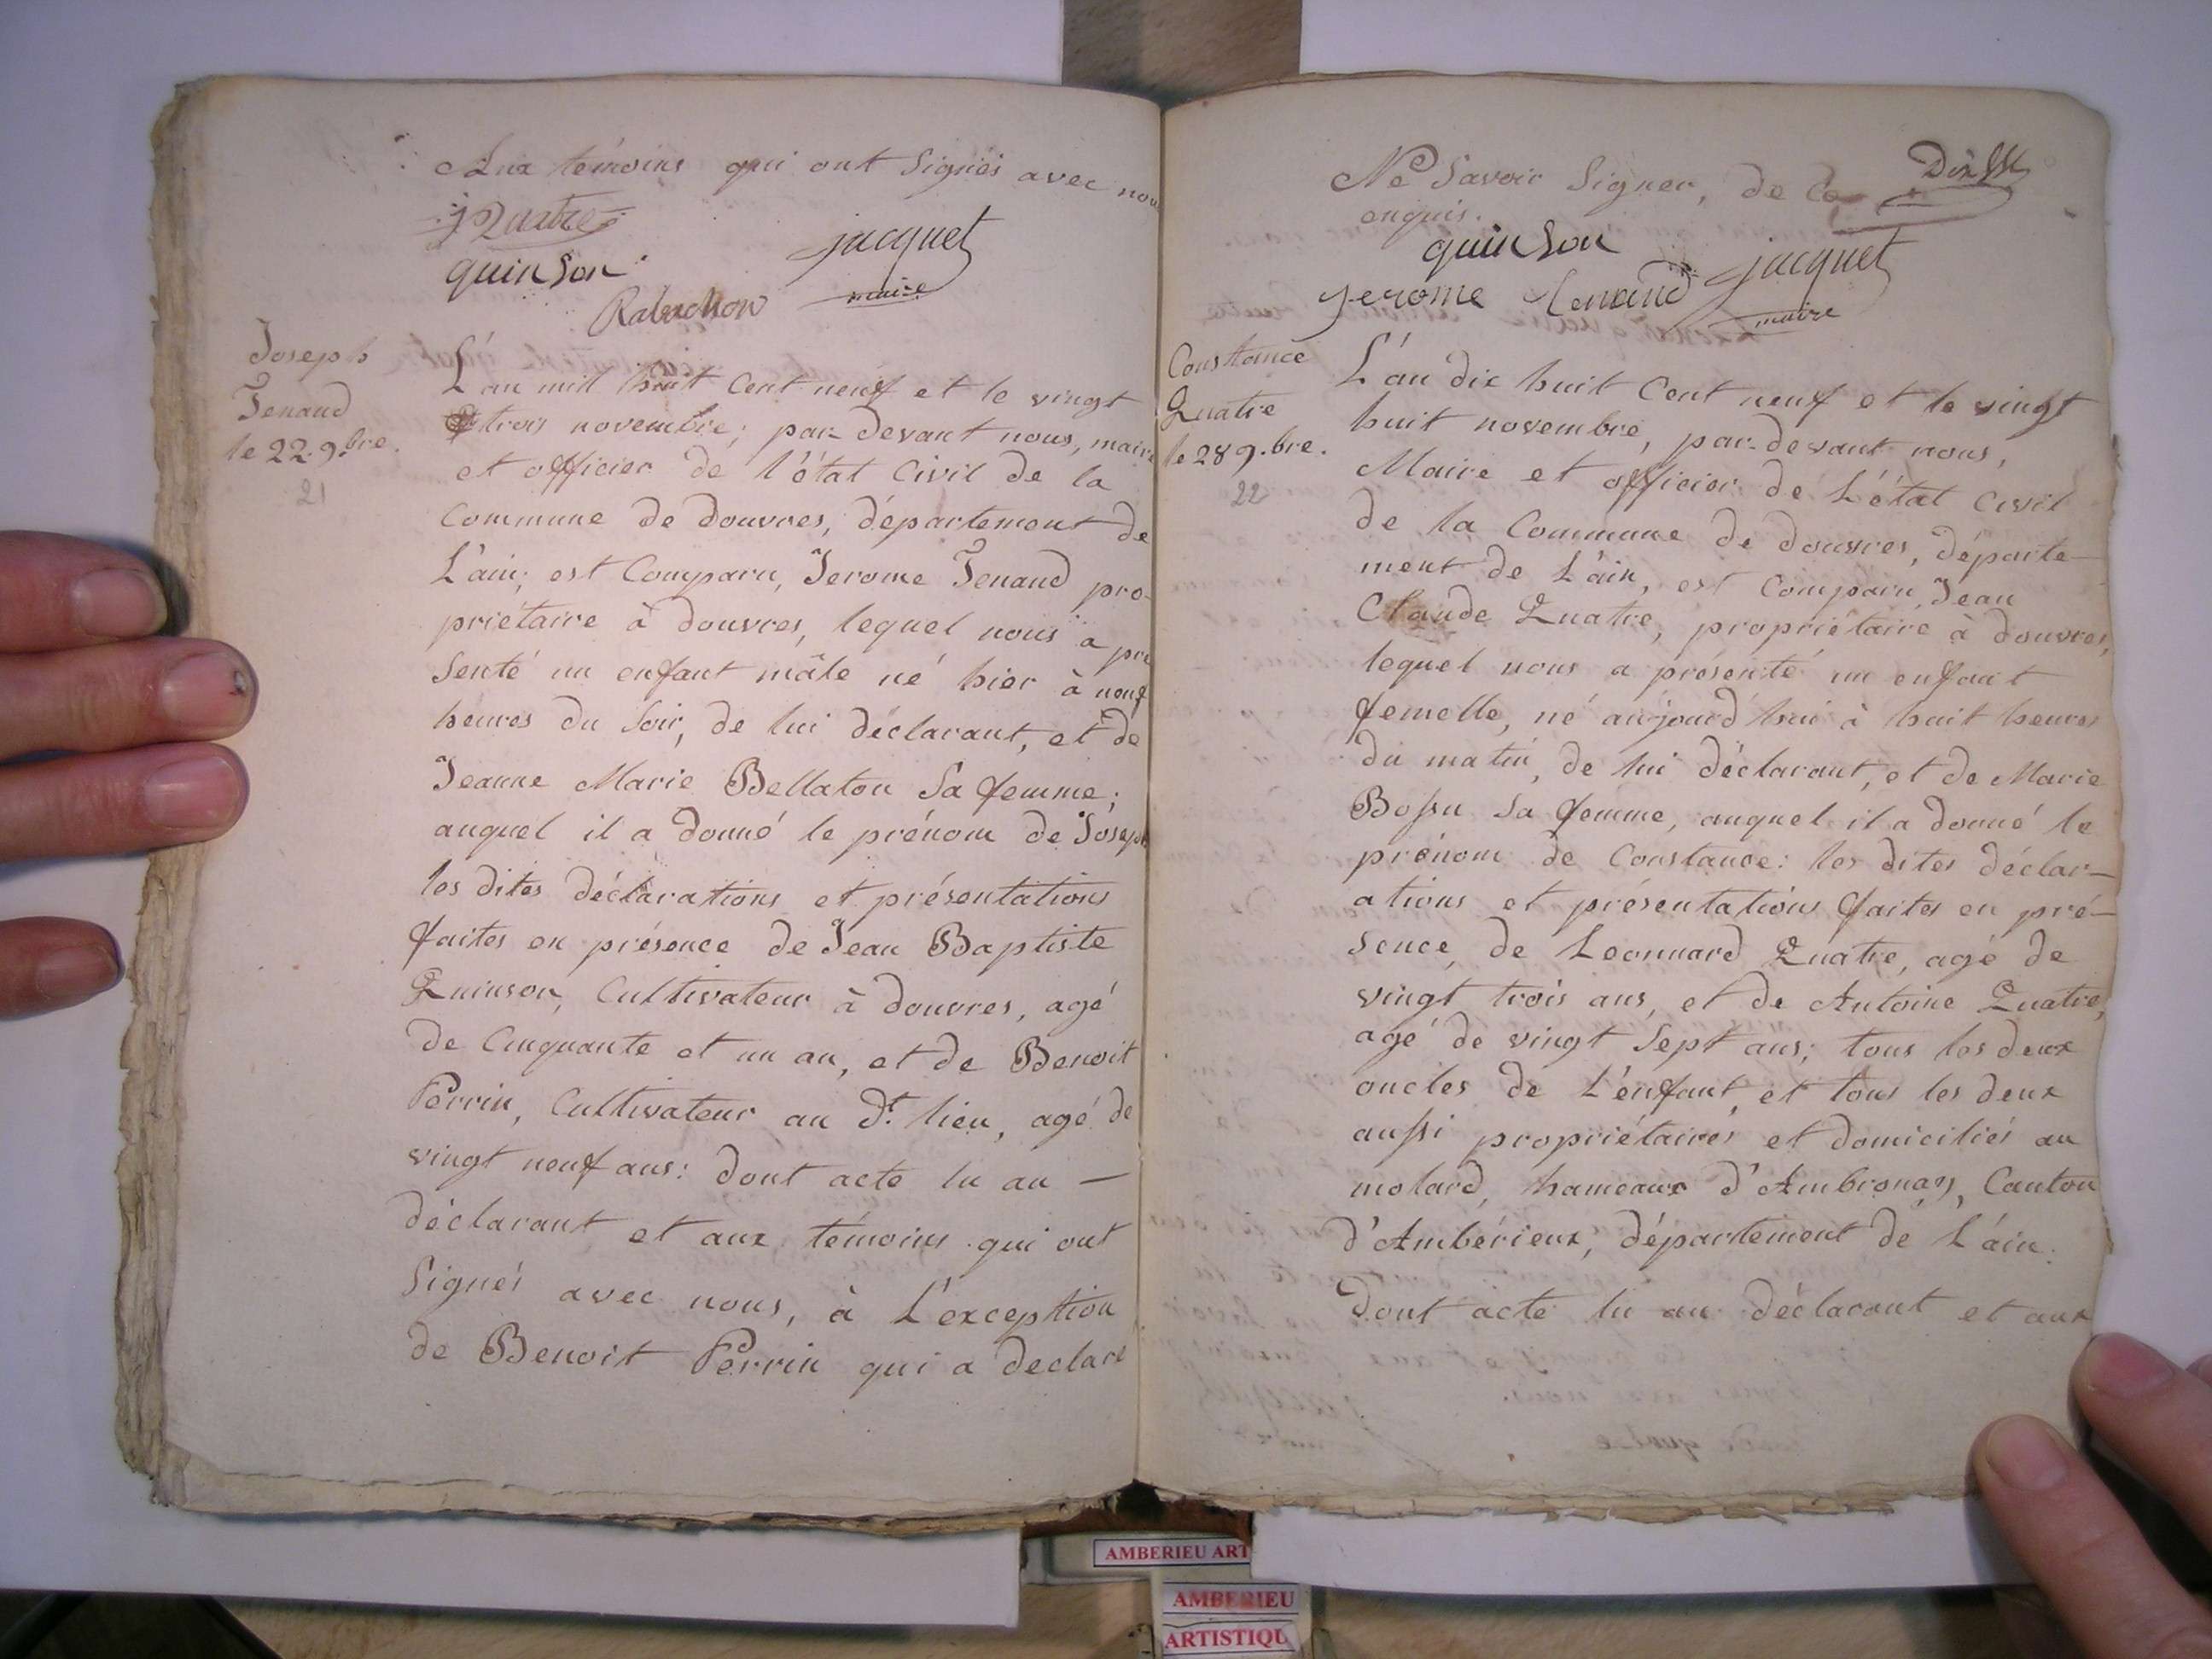 Aux témoins qui ont Signés avec nous
J Quatre
quinson
jacquet
maire
Joseph
Tenand
le 22. 9.bre.
21
L'an mil huit Cent neuf et le vingt
trois novembre; par devant nous, maire
et officier de l'état Civil de la
Commune de douvres, département de
L'ain; est Comparu, Jerome Tenand pro-
priétaire à douvres, lequel nous a pré
senté un enfant mâle né hier à neuf
heures du soir, de lui déclarant, et de
Jeanne Marie Bellaton Sa femme;
auquel il a donné le prénom de Joseph
les dites déclarations et présentations
faites en présence de Jean Baptiste
Quinson, Cultivateur à douvres, agé
de Cinquante et un an, et de Benoit
Perrin, Cultivateur au dt. lieu, agé de
vingt neuf ans: dont acte lu au —
déclarant et aux témoins qui ont
Signés avec nous, à L'exception
de Benoit Perrin qui a declaré
Ne Savoir Signer, de Ce
enquis.
quinson
jacquet
Jerome Tenand
maire
Constance
Quatre
le 28 9.bre.
22
L'an dix huit Cent neuf et le vingt
huit novembre, par-devant nous,
Maire et officier de L'état Civil
de la Commune de douvres, départe-
ment de L'ain, est Comparu, Jean
Claude Quatre, propriétaire à douvres,
lequel nous a présenté un enfant
femelle, né aujourd'hui à huit heures
du matin, de lui déclarant, et de Marie
Bossu Sa femme, auquel il a donné le
prénom de Constance: les dites déclar-
ations et présentations faites en pré-
sence, de Leonnard Quatre, agé de
vingt trois ans, et de Antoine Quatre,
agé de vingt Sept ans; tous les deux
oncles de L'enfant, et tous les deux
aussi propriétaires et domiciliés au
molard, hameaux d'Ambronay, Canton
d'Ambérieux, département de L'ain.
Dont acte lu au déclarant et aux
AMBERIEU ART
AMBERIEU
ARTISTIQU